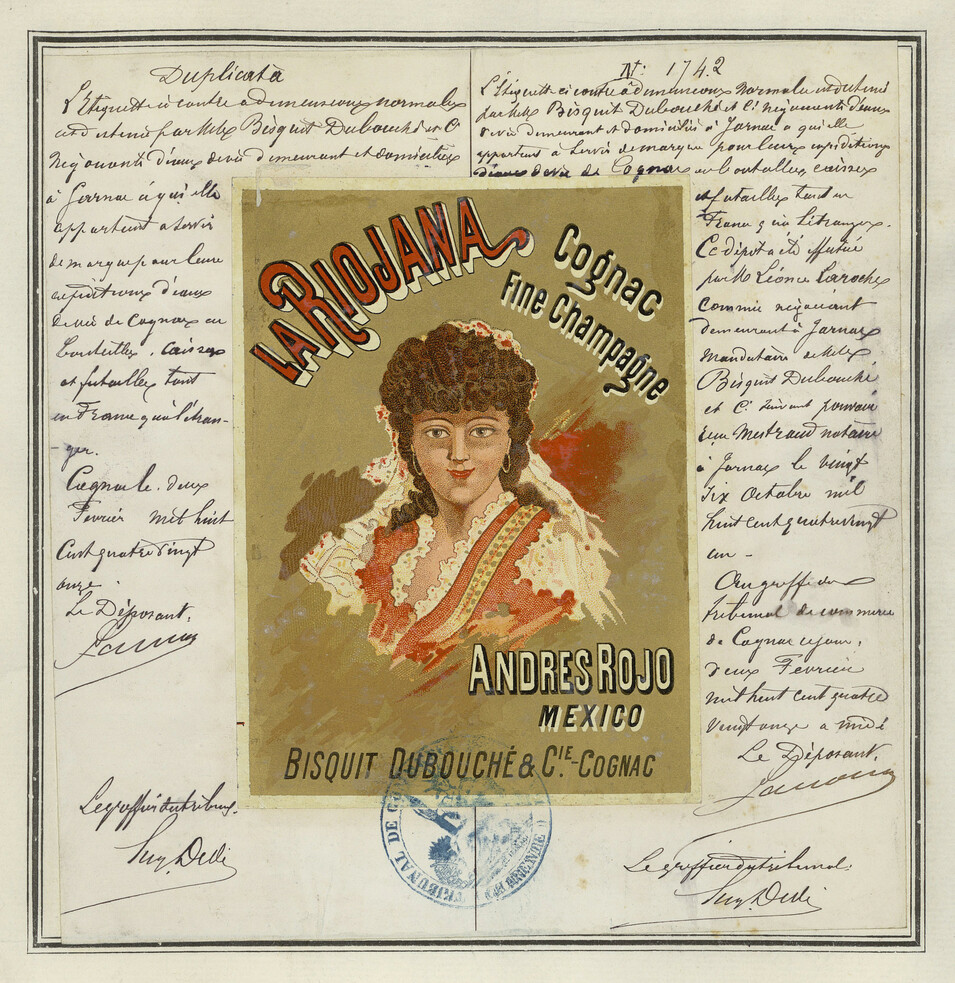 Duplicata
L'Etiquette ci contre a dimensions normales
est detenue par M.rs Bisquit Dubouché et C.ie
Négociants d'eaux de vie demeurant et domiciliés
à Jarnac à qui elle
appartient a servir
de marque pour leurs
expéditions d'eaux
de vie de Cognac en
bouteilles, caisses
et futailles tant
en France qu'à l'étran-
ger.
Cognac le deux
Février mil huit
cent quatre vingt
onze.
Le Déposant,
Le greffier du tribunal.
N.o 1742
L'Etiquette ci contre a dimensions normales est detenue
par M.rs Bisquit Dubouché et C.ie Négociants d'eaux
de vie demeurant et domiciliés à Jarnac a qui elle
appartient à servir de marque pour leurs expéditions
d'eaux de vie de Cognac en bouteilles caisses
et futailles tant en
France qu'à l'étranger.
Ce dépôt a été effectué
par M. Léonce Laroche
Commis négociant
demeurant à Jarnac
Mandataire de M.rs
Bisquit Dubouché
et C.ie suivant pouvoir
reçu Mestraud notaire
à Jarnac le vingt
six Octobre mil
huit cent quatre vingt
un -
Au greffe du
tribunal de commerce
de Cognac ce jour,
deux Février
mil huit cent quatre
vingt onze a midi
Le Déposant,
Le greffier du tribunal.
LA RIOJANA
Cognac
Fine Champagne
ANDRES ROJO
MEXICO
BISQUIT DUBOUCHÉ & C.IE - COGNAC
TRIBUNAL DE